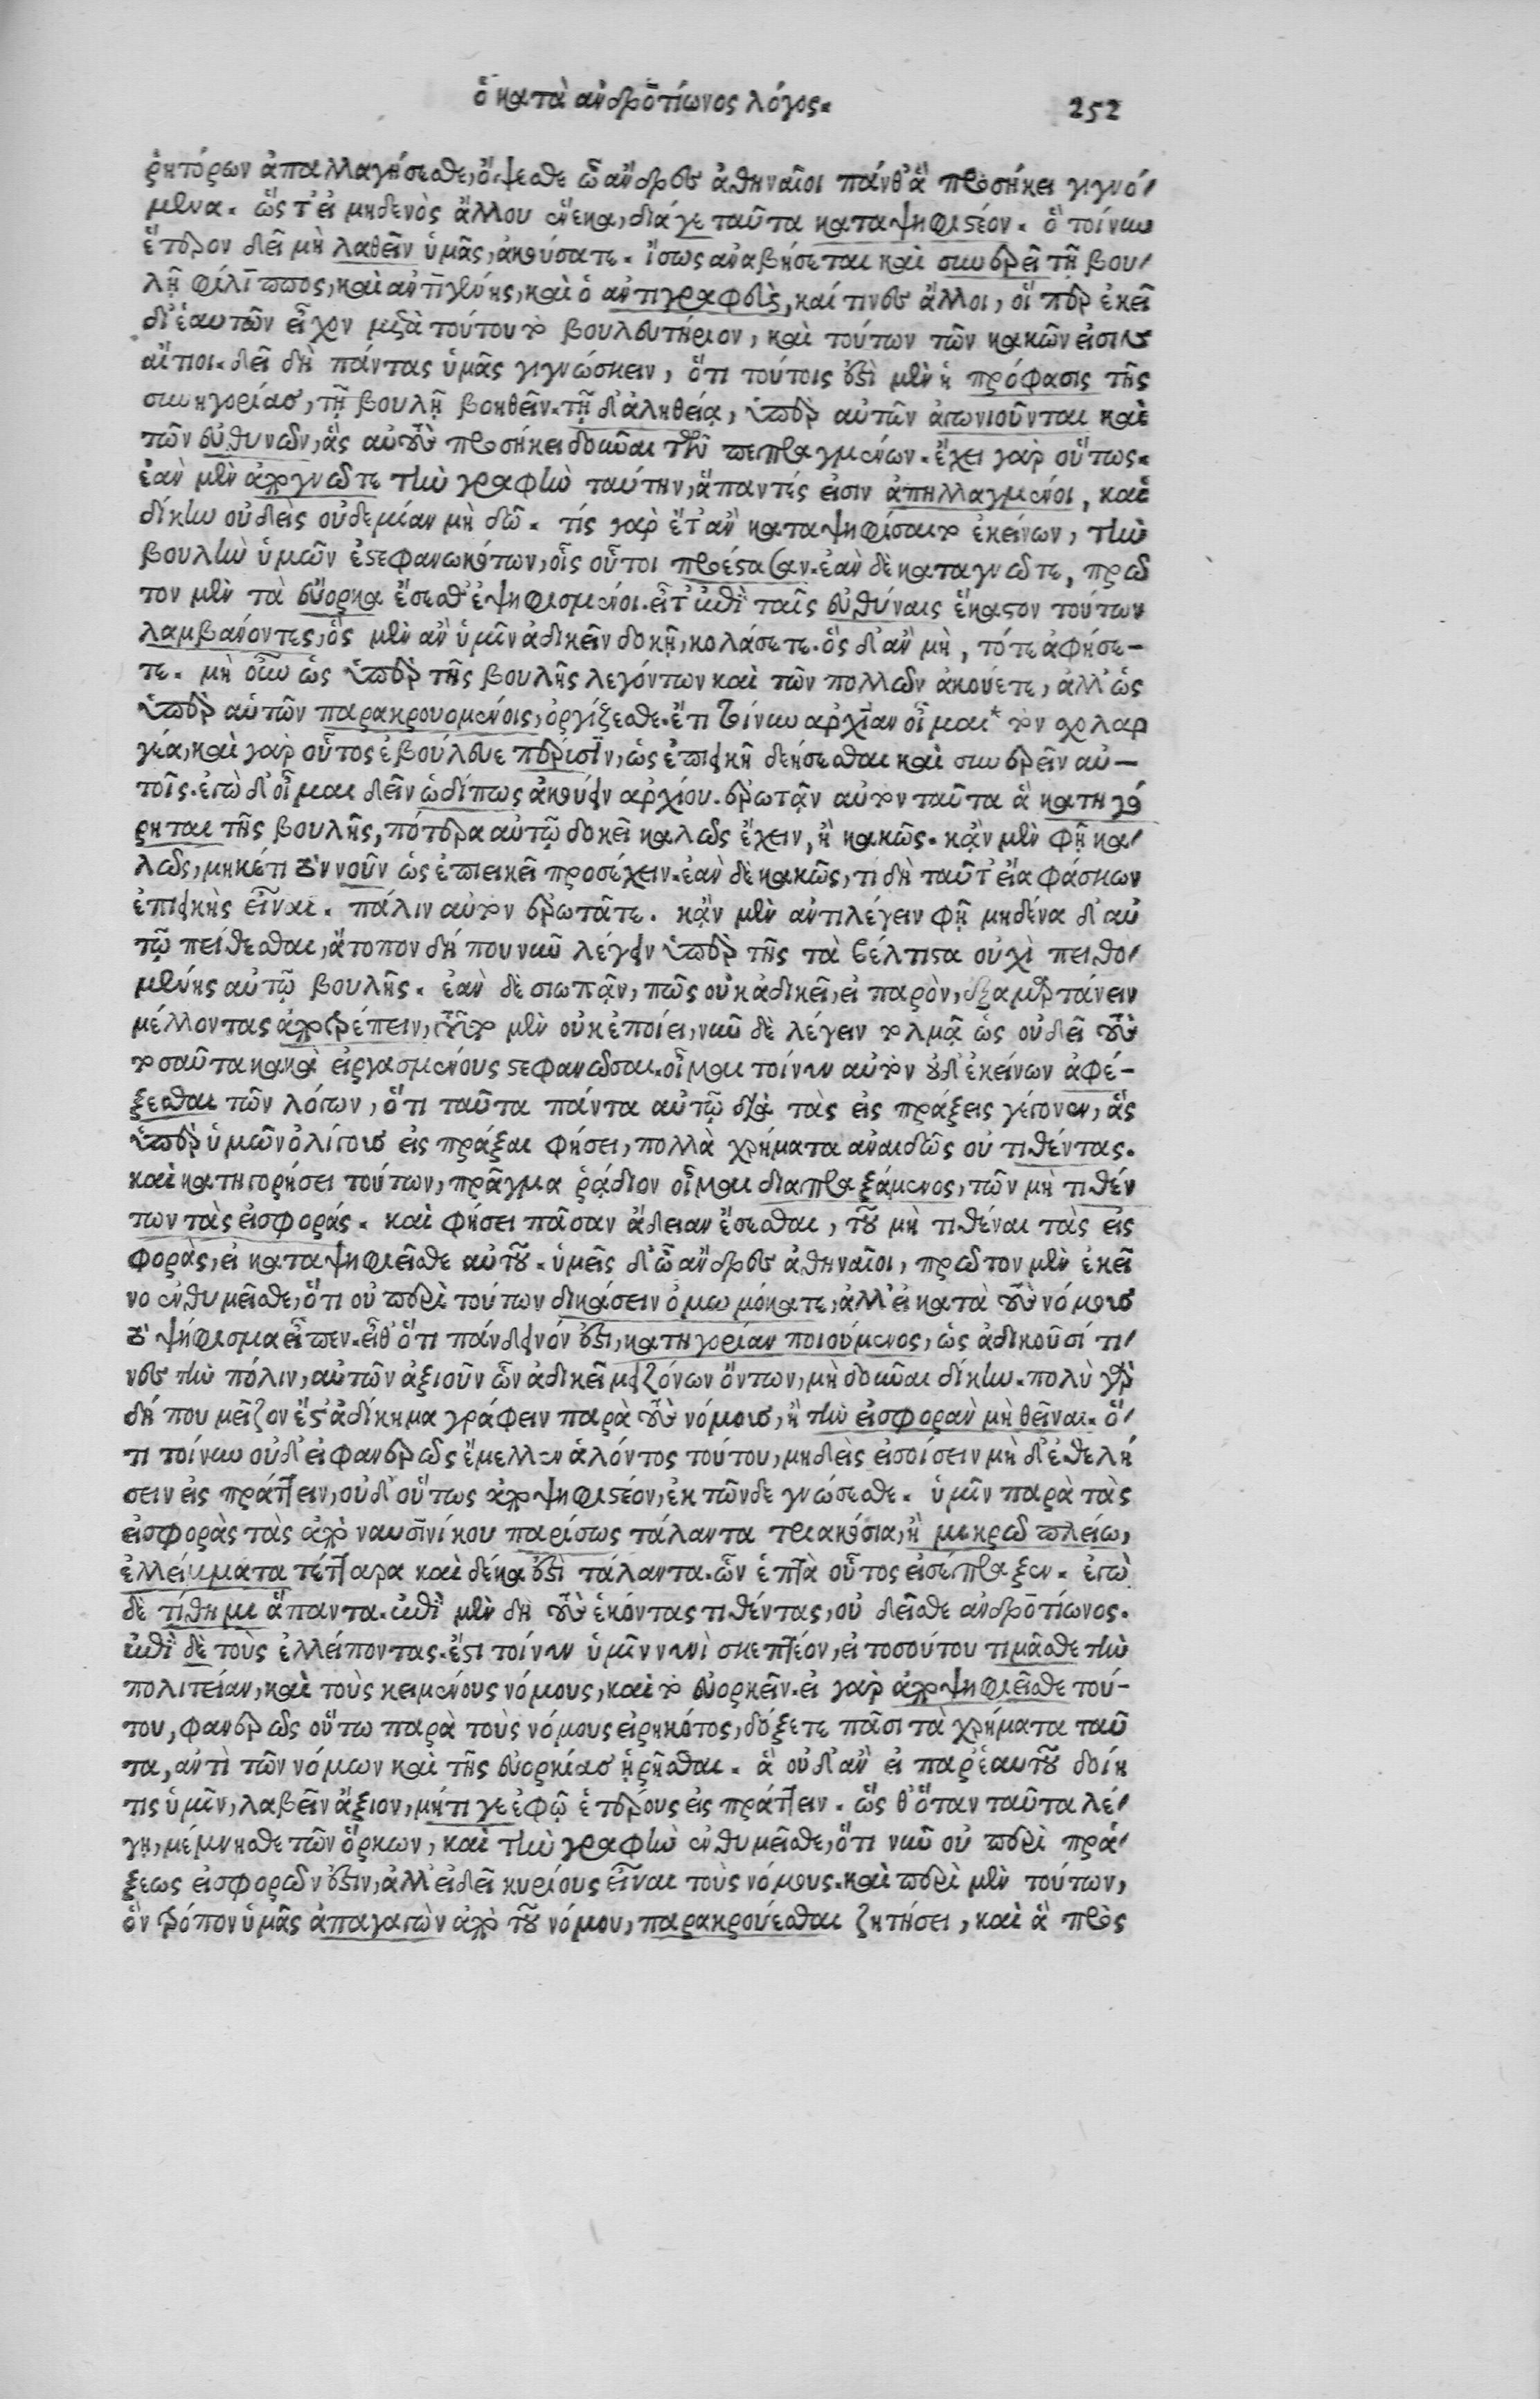 ὁ κατὰ ἀνδροτίωνος λόγος. 252
ῥητόρων ἀπαλλαγήσεσθε, ὄψεσθε ὦ ἄνδρες ἀθηναῖοι πάνθ' ἃ προσήκει γιγνό-
μενα. ὥστ' εἰ μηδενὸς ἄλλου ἕνεκα, διά γε ταῦτα καταψηφιστέον. ὃ τοίνυν
ἕτερον δεῖ μὴ λαθεῖν ὑμᾶς, ἀκούσατε. ἴσως ἀναβήσεται καὶ συνερεῖ τῇ βου-
λῇ φίλιππος, καὶ ἀντιγένης, καὶ ὁ ἀντιγραφεὺς, καί τινες ἄλλοι, οἵπερ ἐκεῖ
δι' ἑαυτῶν εἶχον μετὰ τούτου τὸ βουλευτήριον, καὶ τούτων τῶν κακῶν εἰσιν
αἴτιοι. δεῖ δὴ πάντας ὑμᾶς γιγνώσκειν, ὅτι τούτοις ἐστὶ μὲν ἡ πρόφασις τῆς
συνηγορίας, τῇ βουλῇ βοηθεῖν. τῇ δ' ἀληθείᾳ, ὑπὲρ αὑτῶν ἀγωνιοῦνται καὶ
τῶν εὐθυνῶν, ἃς αὐτοὺς προσήκει δοῦναι τῶν πεπραγμένων. ἔχει γὰρ οὕτως.
ἐὰν μὲν ἀπογνῶτε τὴν γραφὴν ταύτην, ἅπαντές εἰσιν ἀπηλλαγμένοι, καὶ
δίκην οὐδεὶς οὐδεμίαν μὴ δῷ. τίς γὰρ ἔτ' ἂν καταψηφίσαιτο ἐκείνων, τὴν
βουλὴν ὑμῶν ἐστεφανωκότων, οἷς οὗτοι προέστασαν. ἐὰν δὲ καταγνῶτε, πρῶ
τον μὲν τὰ εὔορκα ἔσεσθ' ἐψηφισμένοι. εἶτ' ἐπὶ ταῖς εὐθύναις ἕκαστον τούτων
λαμβάνοντες, ὃς μὲν ἂν ὑμῖν ἀδικεῖν δοκῇ, κολάσετε. ὃς δ' ἂν μὴ, τότε ἀφήσε-
τε. μὴ οὖν ὡς ὑπὲρ τῆς βουλῆς λεγόντων καὶ τῶν πολλῶν ἀκούετε, ἀλλ' ὡς
ὑπὲρ αὑτῶν παρακρουομένοις, ὀργίζεσθε. ἔτι τοίνυν ἀρχίαν οἶμαι* τὸν χολαρ
γέα, καὶ γὰρ οὗτος ἐβούλευε πέρυσιν, ὡς ἐπιεικῆ δεήσεσθαι καὶ συνερεῖν αὐ-
τοῖς. ἐγὼ δ' οἶμαι δεῖν ὡδίπως ἀκούειν ἀρχίου. ἐρωτᾶν αὐτὸν ταῦτα ἃ κατηγό
ρηται τῆς βουλῆς, πότερα αὐτῷ δοκεῖ καλῶς ἔχειν, ἢ κακῶς. κἂν μὲν φῇ κα-
λῶς, μηκέτι τὸν νοῦν ὡς ἐπιεικεῖ προσέχειν. ἐὰν δὲ κακῶς, τί δὴ ταῦτ' εἴα φάσκων
ἐπιεικὴς εἶναι. πάλιν αὐτὸν ἐρωτᾶτε. κἂν μὲν ἀντιλέγειν φῇ μηδένα δ' αὐ
τῷ πείθεσθαι, ἄτοπον δήπου νῦν λέγειν ὑπὲρ τῆς τὰ βέλτιστα οὐχὶ πειθο-
μένης αὐτῷ βουλῆς. ἐὰν δὲ σιωπᾶν, πῶς οὐκ ἀδικεῖ, εἰ παρὸν, ἐξαμαρτάνειν
μέλλοντας ἀποτρέπειν, τοῦτο μὲν οὐκ ἐποίει, νῦν δὲ λέγειν τολμᾷ ὡς οὐ δεῖ τοὺς
τοσαῦτα κακὰ εἰργασμένους στεφανῶσαι. οἶμαι τοίνυν αὐτὸν οὐδ' ἐκείνων ἀφέ-
ξεσθαι τῶν λόγων, ὅτι ταῦτα πάντα αὐτῷ διὰ τὰς εἰς πράξεις γέγονεν, ἃς
ὑπὲρ ὑμῶν ὀλίγους εἰς πρᾶξαι φήσει, πολλὰ χρήματα ἀναιδῶς οὐ τιθέντας.
καὶ κατηγορήσει τούτων, πρᾶγμα ῥᾴδιον οἶμαι διαπραξάμενος, τῶν μὴ τιθέν
των τὰς εἰσφοράς. καὶ φήσει πᾶσαν ἄδειαν ἔσεσθαι, τοῦ μὴ τιθέναι τὰς εἰς
φορὰς, εἰ καταψηφιεῖσθε αὐτοῦ. ὑμεῖς δ' ὦ ἄνδρες ἀθηναῖοι, πρῶτον μὲν ἐκεῖ
νο ἐνθυμεῖσθε, ὅτι οὐ περὶ τούτων δικάσειν ὀμωμόκατε, ἀλλ' εἰ κατὰ τοὺς νόμους
τὸ ψήφισμα εἶπεν. εἶθ' ὅτι πάνδεινόν ἐστι, κατηγορίαν ποιούμενος, ὡς ἀδικοῦσί τι-
νες τὴν πόλιν, αὐτὸν ἀξιοῦν ὧν ἀδικεῖ μειζόνων ὄντων, μὴ δοῦναι δίκην. πολὺ γὰρ
δήπου μεῖζον ἔστ' ἀδίκημα γράφειν παρὰ τοὺς νόμους, ἢ τὴν εἰσφορὰν μὴ θεῖναι. ὅ-
τι τοίνυν οὐδ' εἰ φανερῶς ἔμελλεν ἁλόντος τούτου, μηδεὶς εἰσοίσειν μὴ δ' ἐθελή
σειν εἰς πράττειν, οὐδ' οὕτως ἀποψηφιστέον, ἐκ τῶνδε γνώσεσθε. ὑμῖν παρὰ τὰς
εἰσφορὰς τὰς ἀπὸ ναυσινίκου παρίσως τάλαντα τριακόσια, ἢ μικρῷ πλείω,
ἐλλείμματα τέτταρα καὶ δέκα ἐστὶ τάλαντα. ὧν ἑπτὰ οὗτος εἰσέπραξεν. ἐγὼ
δὲ τίθημι ἅπαντα. ἐπὶ μὲν δὴ τοὺς ἑκόντας τιθέντας, οὐ δεῖσθε ἀνδροτίωνος.
ἐπὶ δὲ τοὺς ἐλλείποντας. ἔστι τοίνυν ὑμῖν νυνὶ σκεπτέον, εἰ τοσούτου τιμᾶσθε τὴν
πολιτείαν, καὶ τοὺς κειμένους νόμους, καὶ τὸ εὐορκεῖν. εἰ γὰρ ἀποψηφιεῖσθε τού-
του, φανερῶς οὕτω παρὰ τοὺς νόμους εἰρηκότος, δόξετε πᾶσι τὰ χρήματα ταῦ
τα, ἀντὶ τῶν νόμων καὶ τῆς εὐορκίας ᾑρῆσθαι. ἃ οὐδ' ἂν εἰ παρ' ἑαυτοῦ δοίη
τις ὑμῖν, λαβεῖν ἄξιον, μήτι γε ἐφῷ ἑτέρους εἰς πράττειν. ὥς θ' ὅταν ταῦτα λέ-
γῃ, μέμνησθε τῶν ὅρκων, καὶ τὴν γραφὴν ἐνθυμεῖσθε, ὅτι νῦν οὐ περὶ πρά-
ξεως εἰσφορῶν ἐστιν, ἀλλ' εἰ δεῖ κυρίους εἶναι τοὺς νόμους. καὶ περὶ μὲν τούτων,
ὃν τρόπον ὑμᾶς ἀπαγαγὼν ἀπὸ τοῦ νόμου, παρακρούεσθαι ζητήσει, καὶ ἃ πρὸς